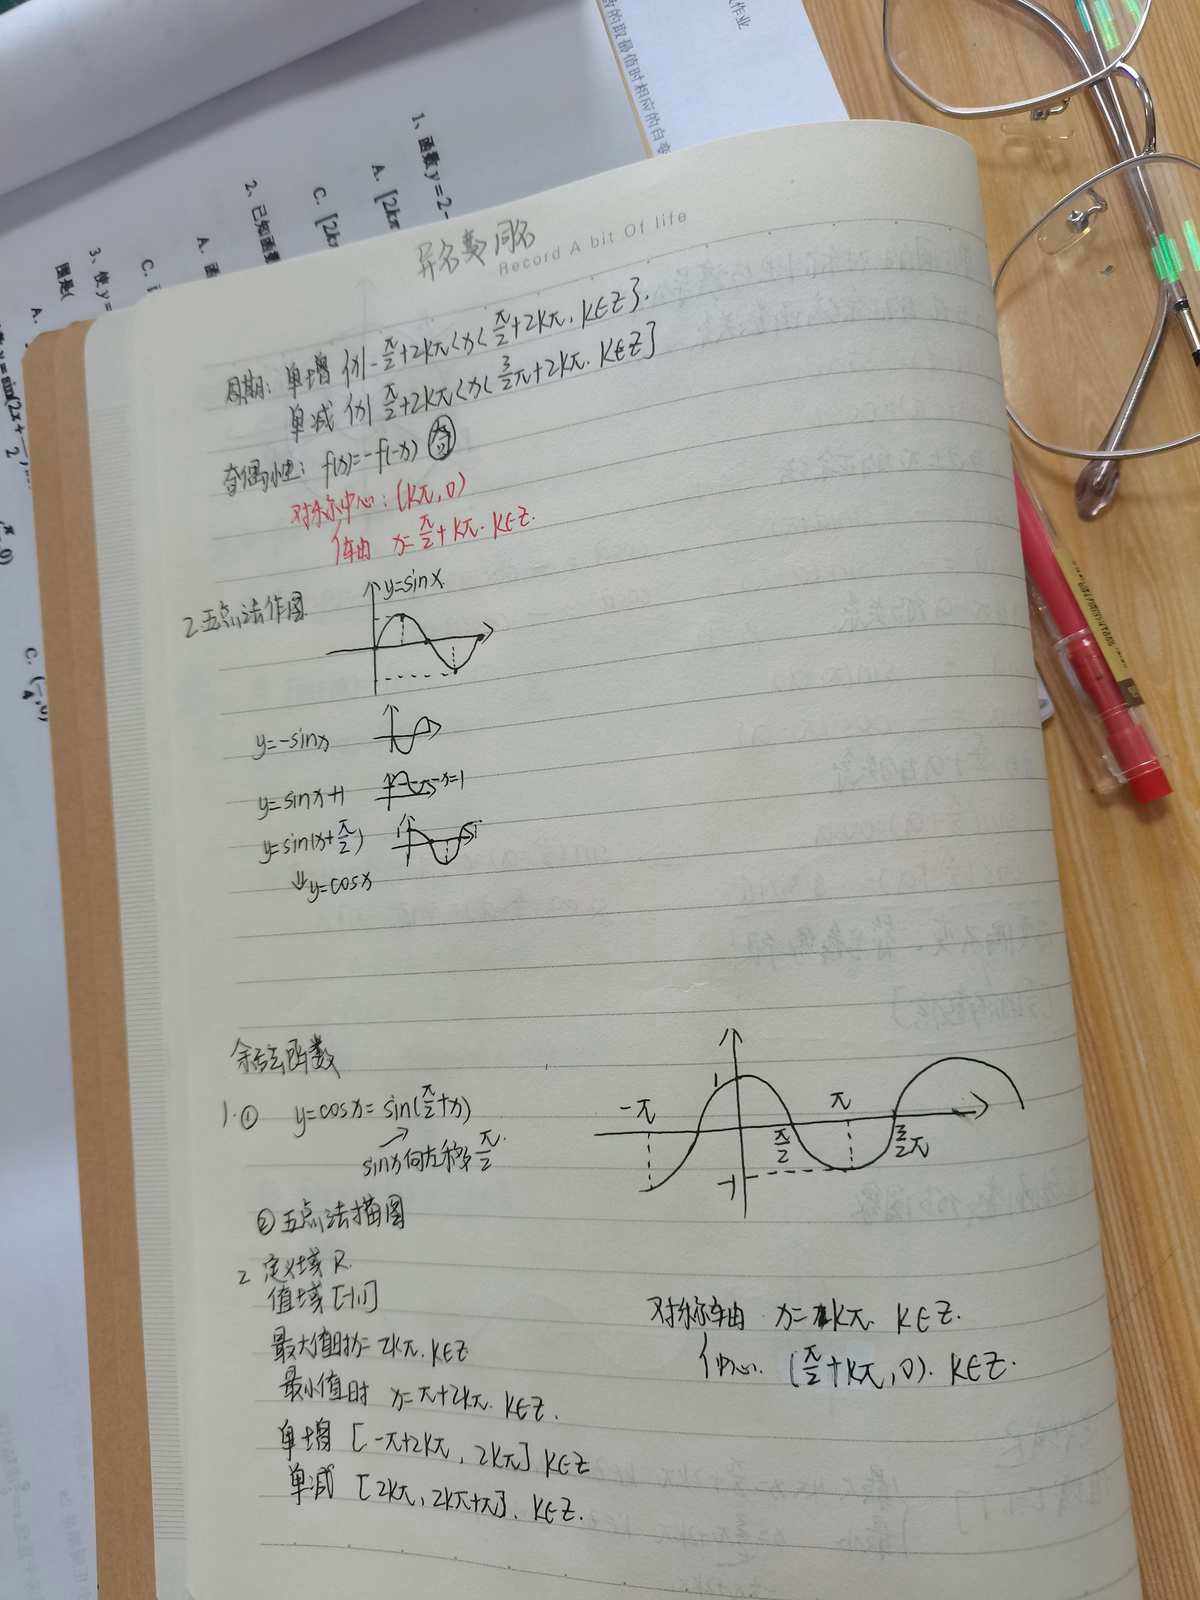 作业
时取最值时相应的自变
1、函数 y = 2 -
A. [2kπ
C. [2kπ
2、已知函数
A. 函
C.
3、使 y =
图是(
A.
y = sin(2x +
2
C. (
4
, 0)
异名变同名
Record A bit Of life
周期: 单增 {x|-π/2+2kπ<x<π/2+2kπ, k∈Z}.
单减 {x|π/2+2kπ<x<3/2π+2kπ. k∈Z]
奇偶性: f(x)=-f(-x) 奇
对称中心: (kπ,0)
{轴 x=π/2+kπ. k∈Z.
2 五点法作图
y=sinx
y=-sinx
y=sinx+1
x=1
y=sin(x+π/2)
⇓ y=cosx
余弦函数
1.① y=cosx=sin(π/2+x)
sinx向左移π/2.
-π
1
π
π/2
3/2π
-1
② 五点法描图
2 定义域 R.
值域 [-1,1]
最大值时x=2kπ. k∈Z
最小值时 x=π+2kπ. k∈Z.
单增 [-π+2kπ, 2kπ] k∈Z
单减 [2kπ, 2kπ+π]. k∈Z.
对称轴 x=kπ. k∈Z.
{中心. (π/2+kπ,0). k∈Z.